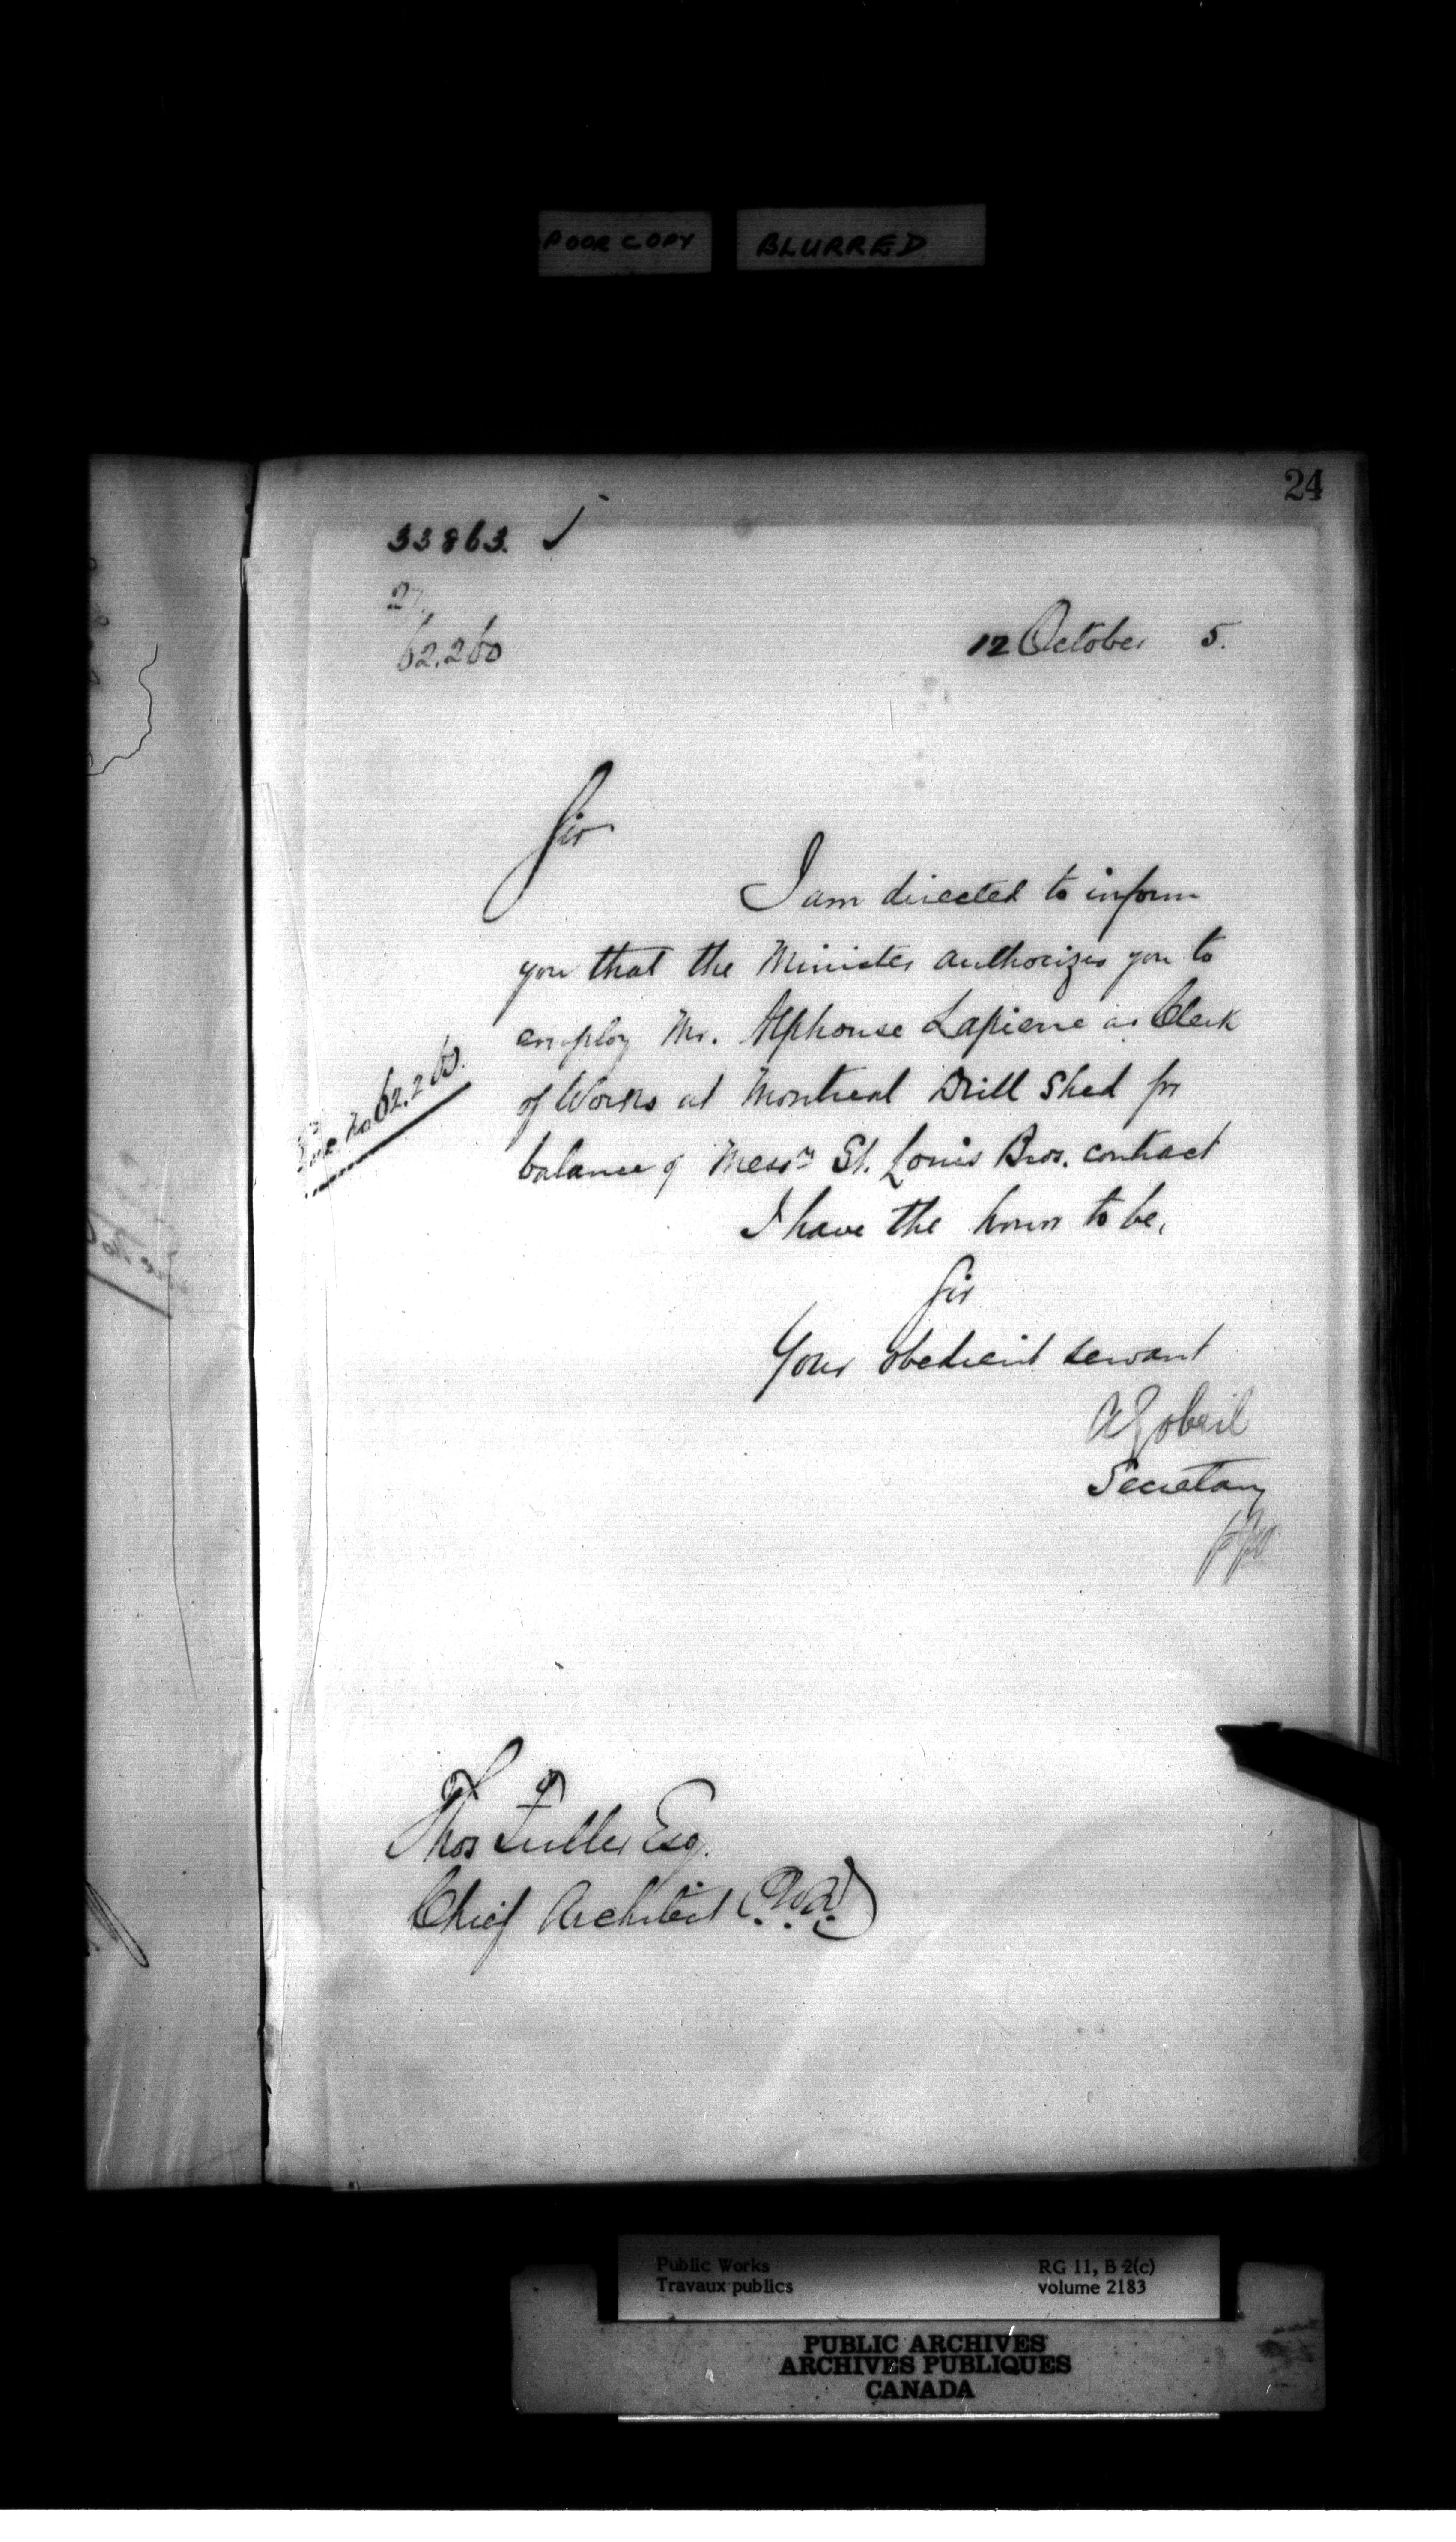 POOR COPY BLURRED
24
33863.
62.260
12 October 5.
Sir
I am directed to inform
you that the Minister authorizes you to
employ Mr. Alphonse Lapierre as Clerk
of Works at Montreal Drill Shed for
balance of Messrs St. Louis Bros. contract
I have the honor to be,
Sir
Your obedient servant
A Gobeil
Secretary
Thos Fuller Esq.
Chief Architect
Public Works RG 11, B 2(c)
Travaux publics volume 2183
PUBLIC ARCHIVES
ARCHIVES PUBLIQUES
CANADA